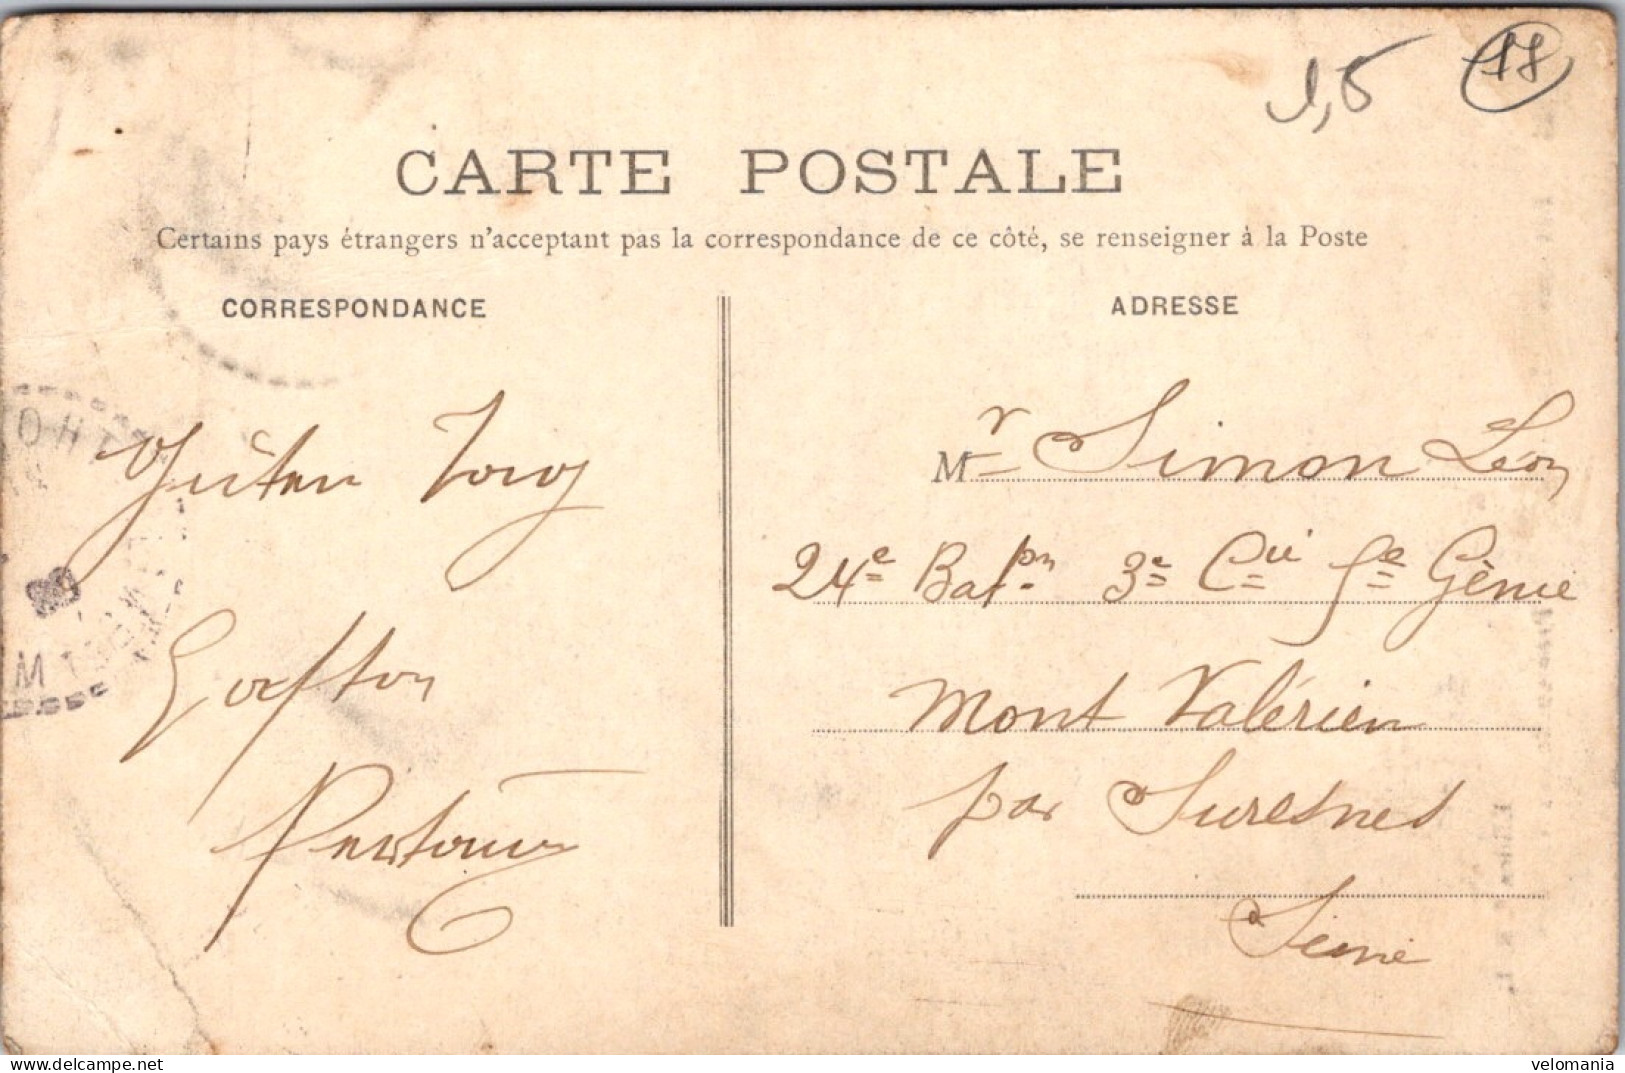 1,5
18
CARTE POSTALE
Certains pays étrangers n'acceptant pas la correspondance de ce côté, se renseigner à la Poste
CORRESPONDANCE
Guten
Gaston
ADRESSE
Mr Simon Léon
24e Batpon 3e Cie 5e Génie
Mont Valérien
par Suresnes
Seine
delcampe.net
velomania